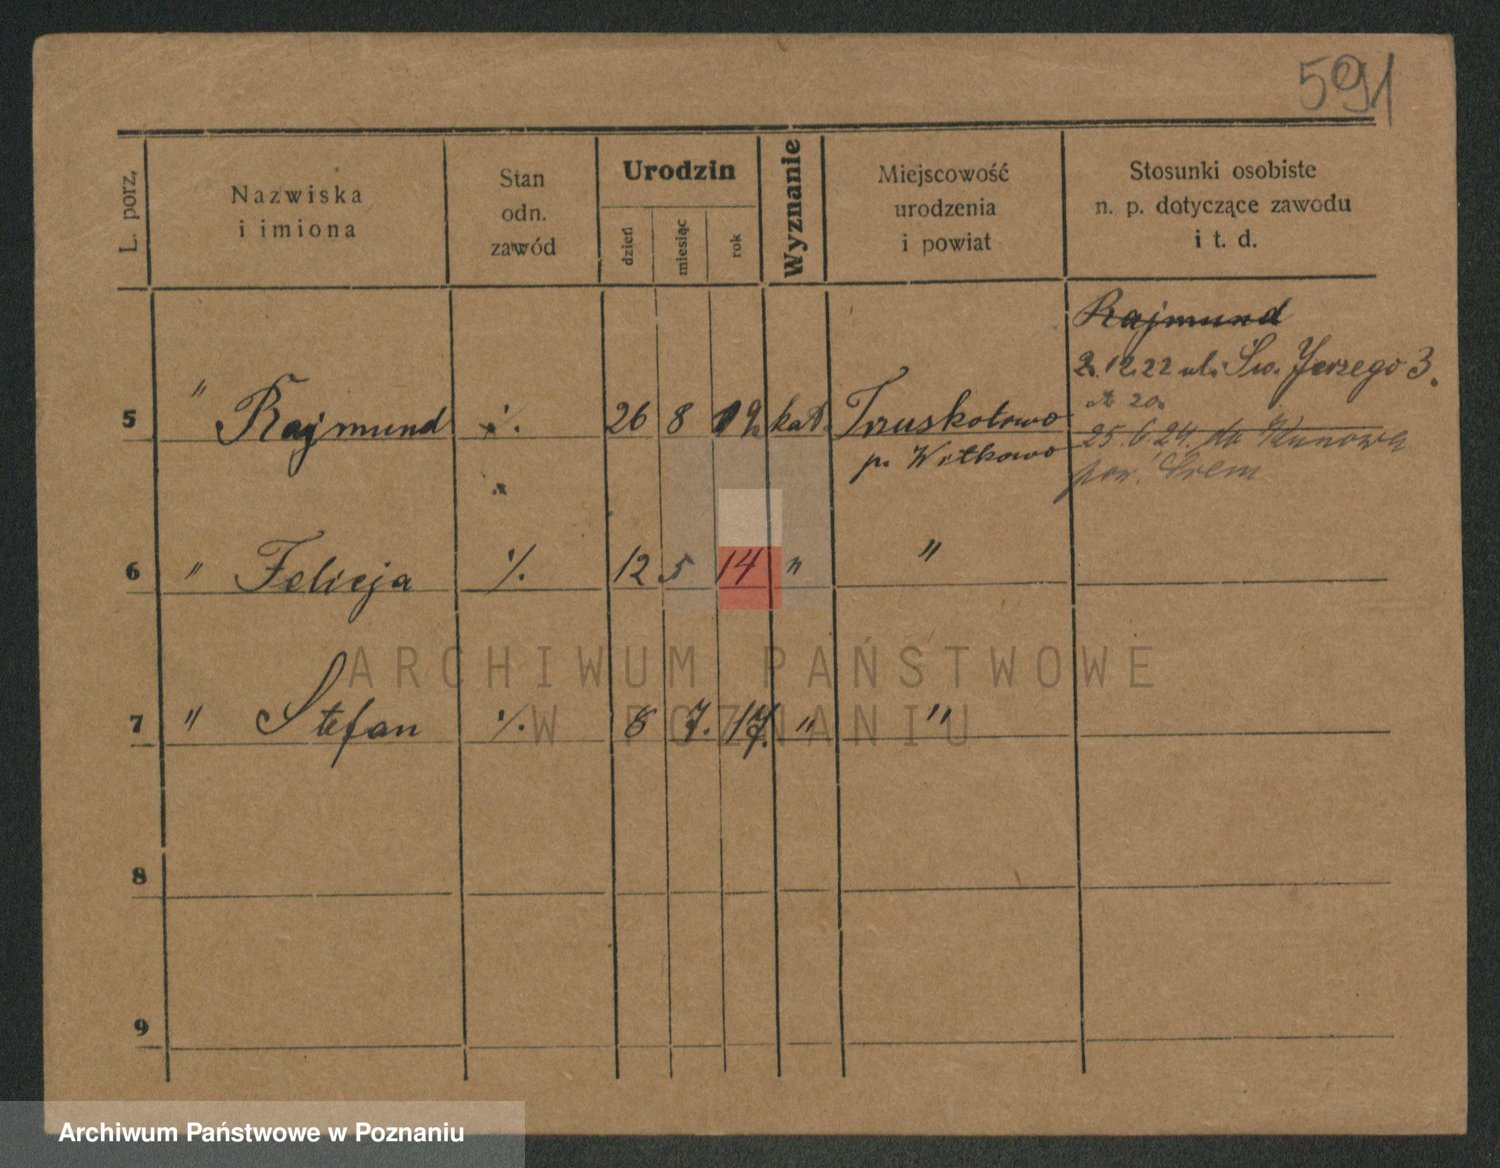 591
L. porz.
Nazwiska
i imiona
Stan
odn.
zawód
Urodzin
dzień
miesiąc
rok
Wyznanie
Miejscowość
urodzenia
i powiat
Stosunki osobiste
n. p. dotyczące zawodu
i t. d.
Rajmund
2.12.22 ul. Św. Jerzego 3.
5 " Rajmund ·/. 26 8 12 kat. Truskotowo
p. Witkowo
25.6.24. do Kunowa
pow. Śrem
6 " Felicja ·/. 12 5 14 " "
7 " Stefan ·/. 8 7. 17. " "
8
9
ARCHIWUM PAŃSTWOWE
W POZNANIU
Archiwum Państwowe w Poznaniu